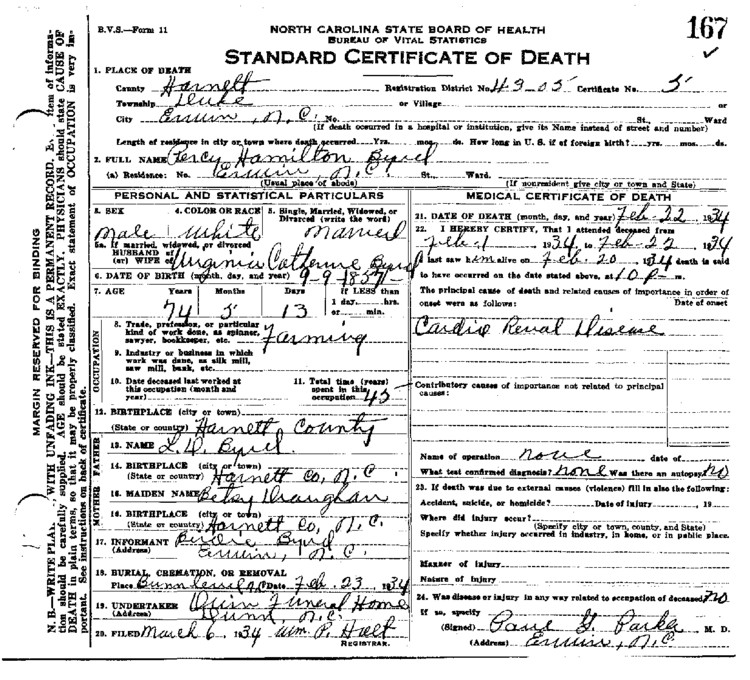 167
✓
B.V.S.—Form 11
NORTH CAROLINA STATE BOARD OF HEALTH
BUREAU OF VITAL STATISTICS
STANDARD CERTIFICATE OF DEATH
1. PLACE OF DEATH
County Harnett Registration District No. 43-05 Certificate No. 5
Township Duke or Village or
City Erwin, N.C. No. St., Ward
(If death occurred in a hospital or institution, give its Name instead of street and number)
Length of residence in city or town where death occurred Yrs. mos. ds. How long in U. S. if of foreign birth? yrs. mos. ds.
2. FULL NAME Percy Hamilton Byrd
(a) Residence: No. Erwin, N.C. St., Ward.
(Usual place of abode) (If nonresident give city or town and State)
PERSONAL AND STATISTICAL PARTICULARS
3. SEX 4. COLOR OR RACE 5. Single, Married, Widowed, or Divorced (write the word)
male White married
5a. If married, widowed, or divorced
HUSBAND of
(or) WIFE of Virginia Catherine Byrd
6. DATE OF BIRTH (month, day, and year) 9-9-1859
7. AGE Years Months Days If LESS than
1 day, hrs.
or min.
74 5 13
8. Trade, profession, or particular
kind of work done, as spinner,
sawyer, bookkeeper, etc. Farming
9. Industry or business in which
work was done, as silk mill,
saw mill, bank, etc.
10. Date deceased last worked at
this occupation (month and
year)
11. Total time (years)
spent in this
occupation 45
OCCUPATION
12. BIRTHPLACE (city or town)
(State or country) Harnett County
FATHER
13. NAME L. D. Byrd
14. BIRTHPLACE (city or town)
(State or country) Harnett Co, N.C.
MOTHER
15. MAIDEN NAME Betsy Draughan
16. BIRTHPLACE (city or town)
(State or country) Harnett Co, N.C.
17. INFORMANT Byrd
(Address) Erwin, N.C.
18. BURIAL, CREMATION, OR REMOVAL
Place Bunnlevel N.C. Date Feb. 23, 1934
19. UNDERTAKER Quinn Funeral Home
(Address) Dunn N.C.
20. FILED March 6, 1934 Wm. P. Holt
REGISTRAR.
MEDICAL CERTIFICATE OF DEATH
21. DATE OF DEATH (month, day, and year) Feb-22 1934
22. I HEREBY CERTIFY, That I attended deceased from
Feb-1 1934, to Feb-22, 1934
I last saw him alive on Feb-20 1934 death is said
to have occurred on the date stated above, at 10 P-m.
The principal cause of death and related causes of importance in order of
onset were as follows: Date of onset
Cardio Renal Disease
Contributory causes of importance not related to principal
cause:
Name of operation none date of
What test confirmed diagnosis? none Was there an autopsy? no
23. If death was due to external causes (violence) fill in also the following:
Accident, suicide, or homicide? Date of injury , 19
Where did injury occur?
(Specify city or town, county, and State)
Specify whether injury occurred in industry, in home, or in public place.
Manner of injury
Nature of injury
24. Was disease or injury in any way related to occupation of deceased? no
If so, specify
(Signed) Paul G. Parker M. D.
(Address) Erwin, N.C.
MARGIN RESERVED FOR BINDING
N. B.—WRITE , WITH UNFADING INK—THIS IS A PERMANENT RECORD. item of informa-
tion should be carefully supplied. AGE should be stated EXACTLY. PHYSICIANS should state CAUSE OF
DEATH in plain terms, so that it may be properly classified. Exact statement of OCCUPATION is very im-
portant. See instructions on back of certificate.